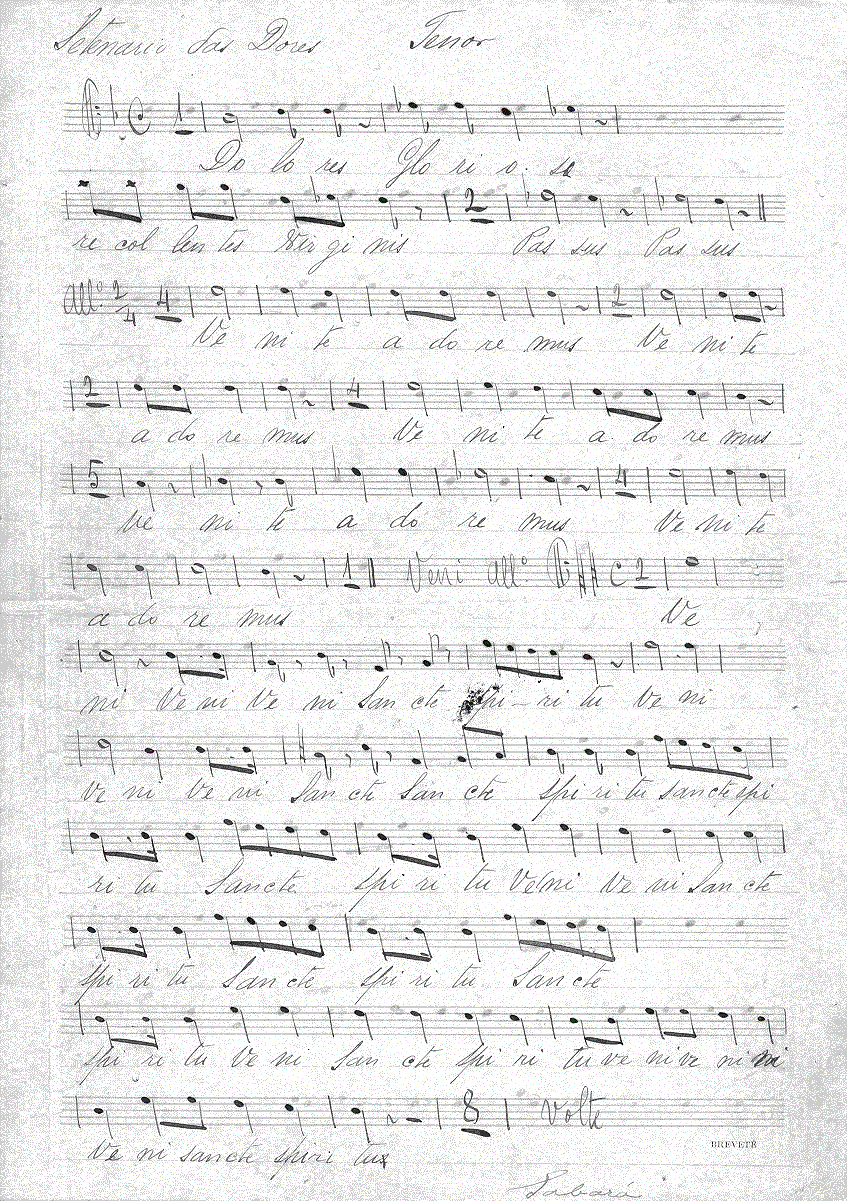 Setenario das Dores Tenor
1
Do lo res Glo ri o. sa
2
re col len tes Vir gi nis Pas sus Pas sus
All.º 2/4 4 2
Ve ni te a do re mus Ve ni te
2 4
a do re mus Ve ni te a do re mus
5 4
Ve ni te a do re mus Ve ni te
1 Veni all.º C 2
a do re mus Ve
ni Ve ni Ve ni San cte Spi - ri tu Ve ni
ve ni Ve ni San cte San cte Spi ri tu sancte spi
ri tu Sancte Spi ri tu Veni Ve ni San cte
Spi ri tu San cte spi ri tu Sancte
Spi ri tu Ve ni San cte Spi ri tu ve ni ve ni ni
8 Volte
Ve ni sancte spiri tus
BREVETÉ
Sabará